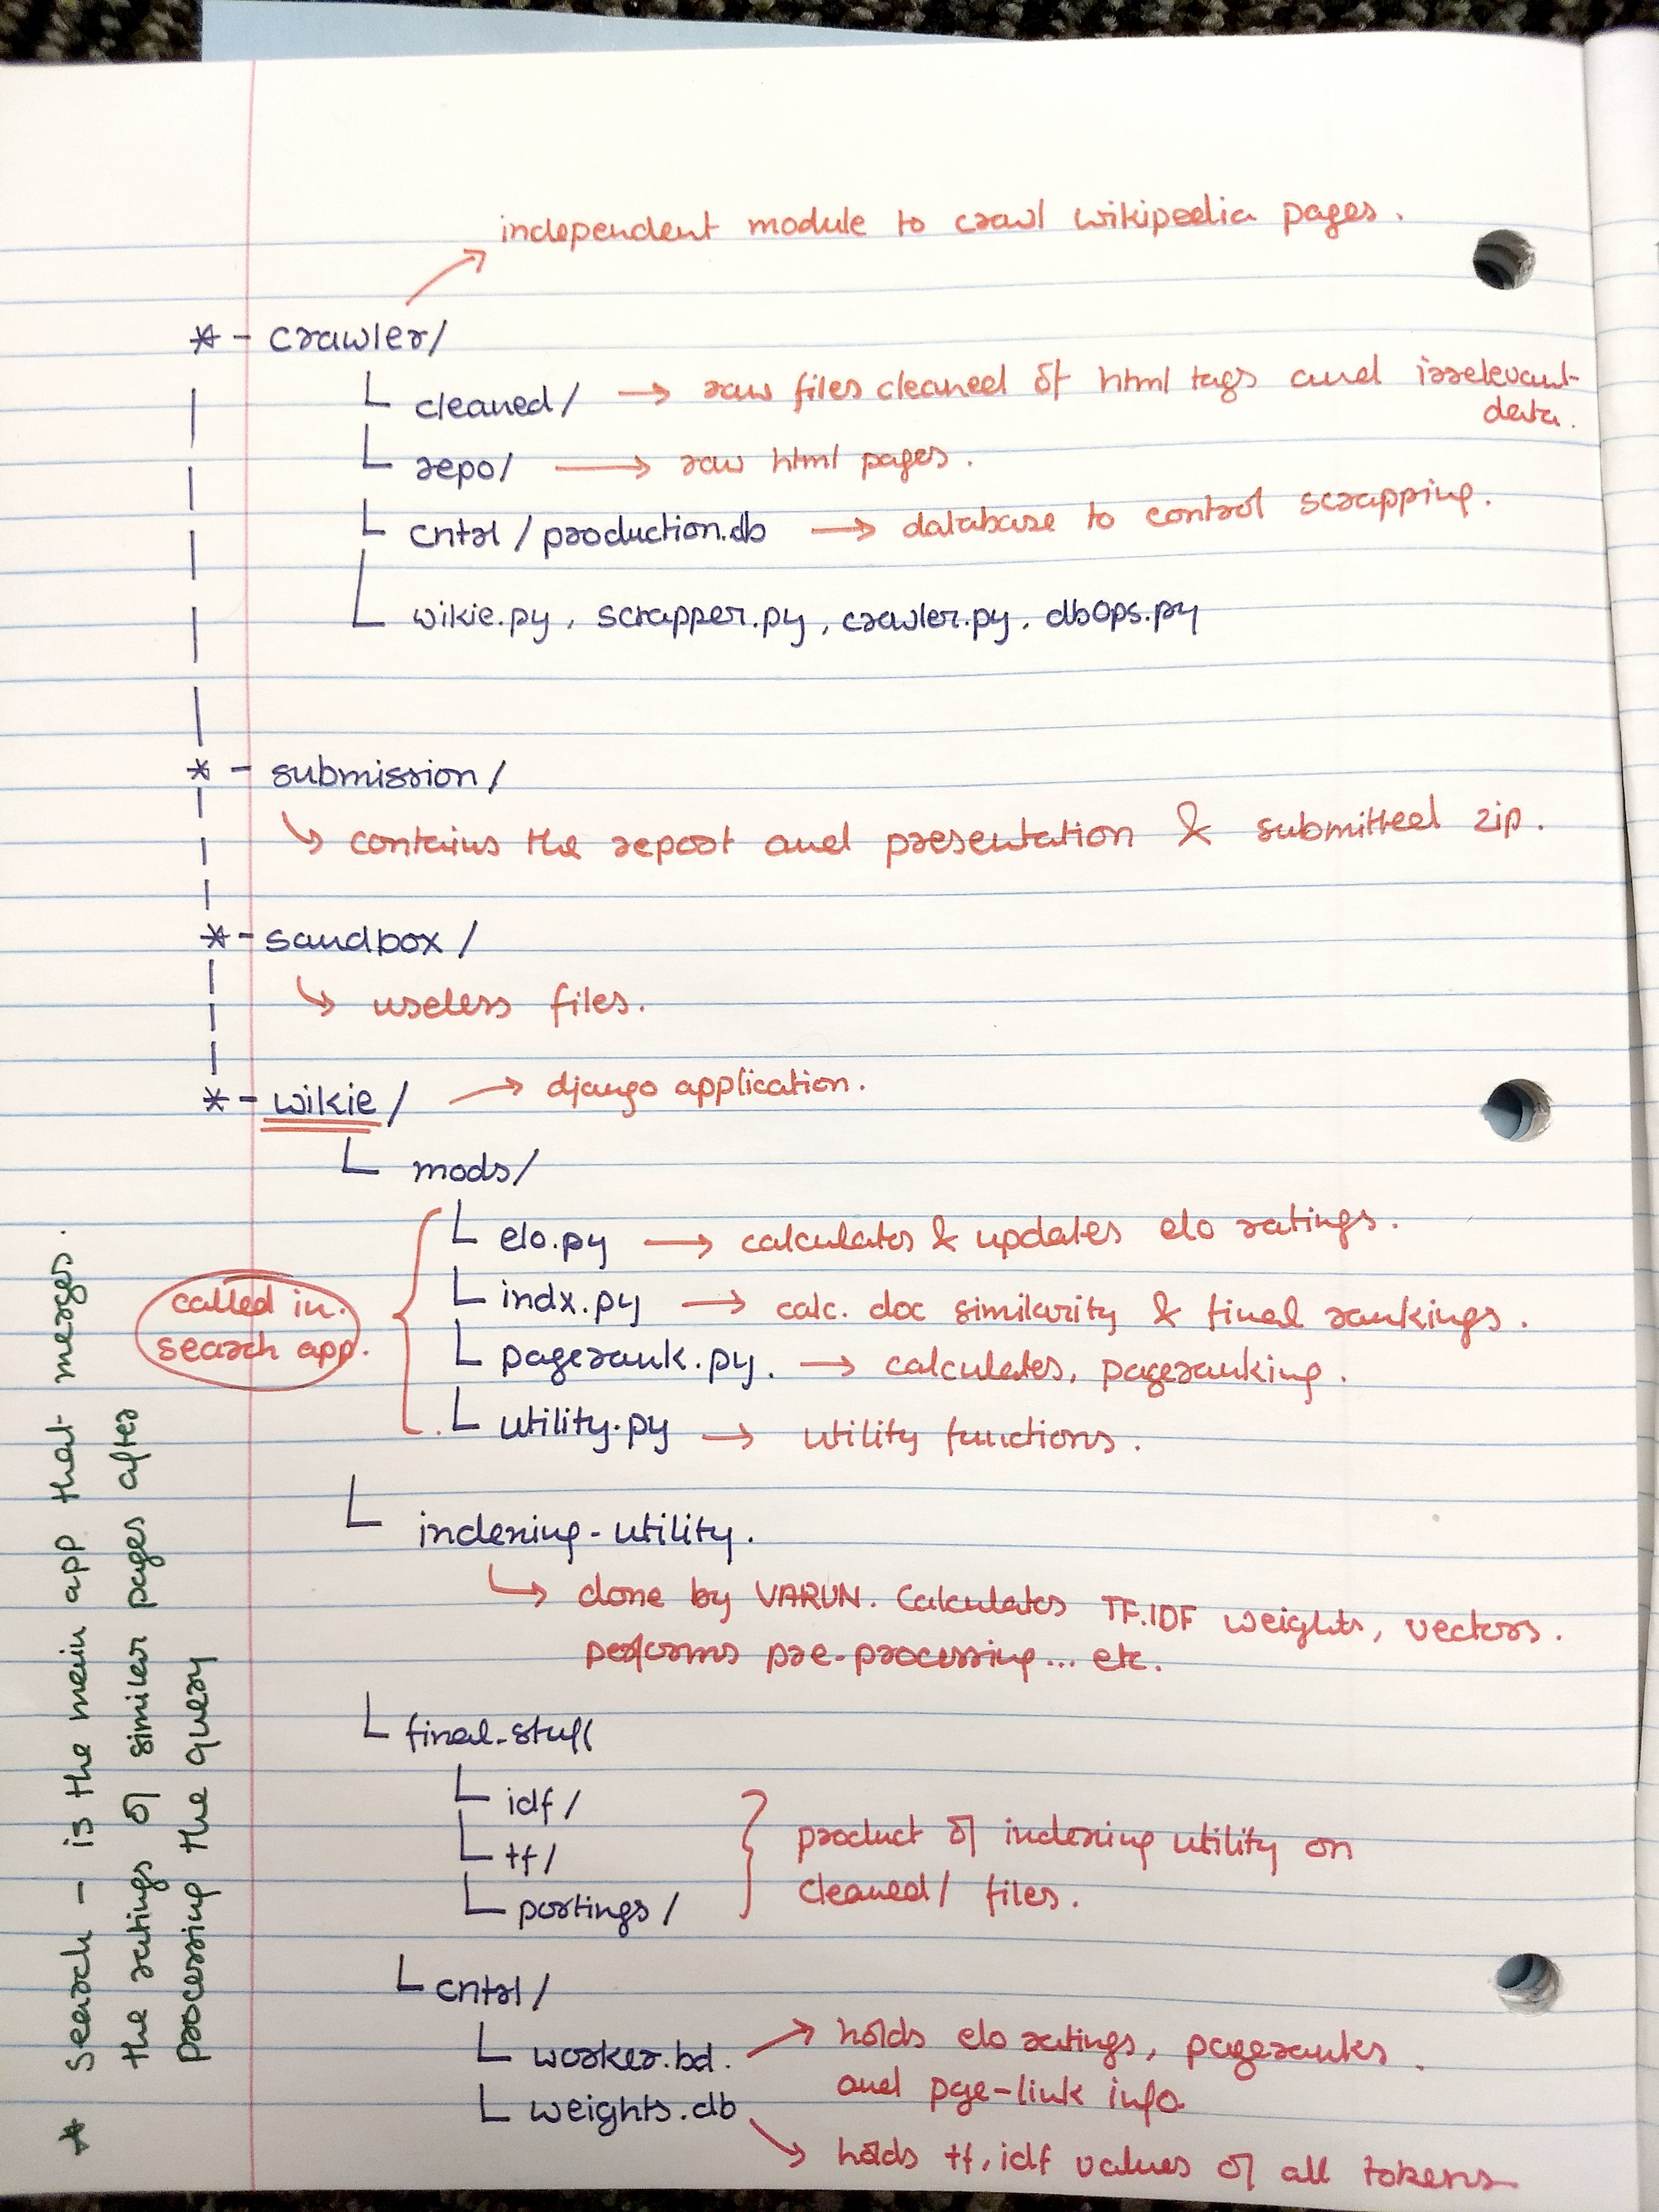 independent module to crawl wikipedia pages.
* - crawler/
cleaned/ → raw files cleaned of html tags and irrelevant
data.
repo/ → raw html pages.
cntrl / production.db → database to control scrapping.
wikie.py, scrapper.py, crawler.py, dbOps.py
* - submission/
contains the report and presentation & submitted zip.
* - sandbox/
useless files.
* - wikie/ → django application.
mods/
elo.py → calculates & updates elo ratings.
indx.py → calc. doc similarity & final rankings.
pagerank.py. → calculates, pageranking.
utility.py → utility functions.
called in.
search app.
indexing-utility.
done by VARUN. Calculates TF.IDF weights, vectors.
performs pre-processing... etc.
final-stuff
idf/
tf/
postings/
product of indexing utility on
cleaned/ files.
cntrl/
worker.bd. → holds elo ratings, pageranks.
and pge-link info
weights.db
holds tf.idf values of all tokens
* Search - is the main app that merges.
the ratings of similer pages after
processing the query